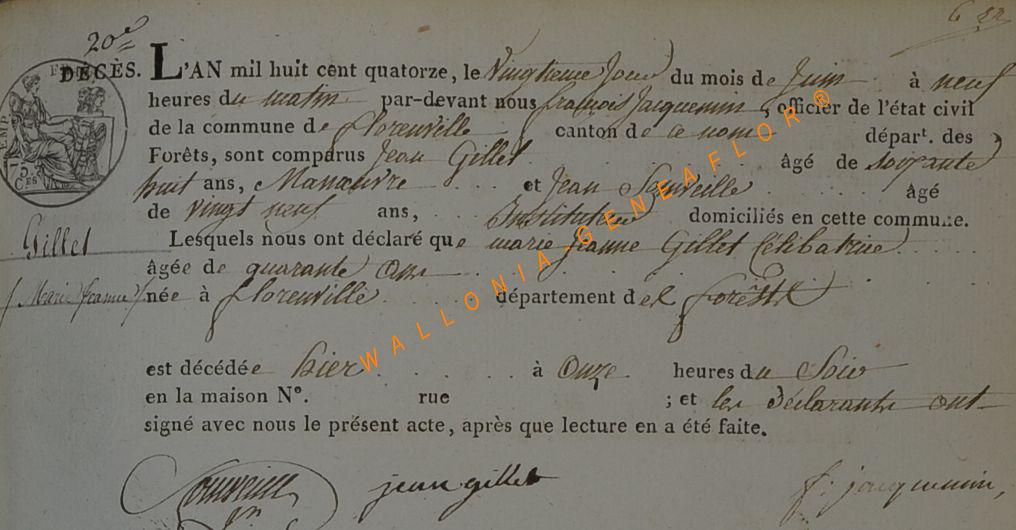 20e
DÉCÈS. L'AN mil huit cent quatorze, le Vingtieme Jour du mois de Juin à neuf
heures du matin par-devant nous françois Jacquemin, officier de l'état civil
de la commune de florenville canton de ce nom départ. des
Forêts, sont comparus Jean Gillet âgé de soixante
huit ans, Manœuvre et Jean Souveille âgé
de vingt neuf ans, Instituteur domiciliés en cette commune.
Gillet
Lesquels nous ont déclaré que marie jeanne Gillet Celibataire
âgée de quarante Ans
(Marie Jeanne)
née à florenville département des forêts
est décédée hier à Onze heures du Soir
en la maison N°. rue ; et les Déclarants ont
signé avec nous le présent acte, après que lecture en a été faite.
Souveille jean gillet f: jacquemin,
WALLONIA-GENEAFLOR®